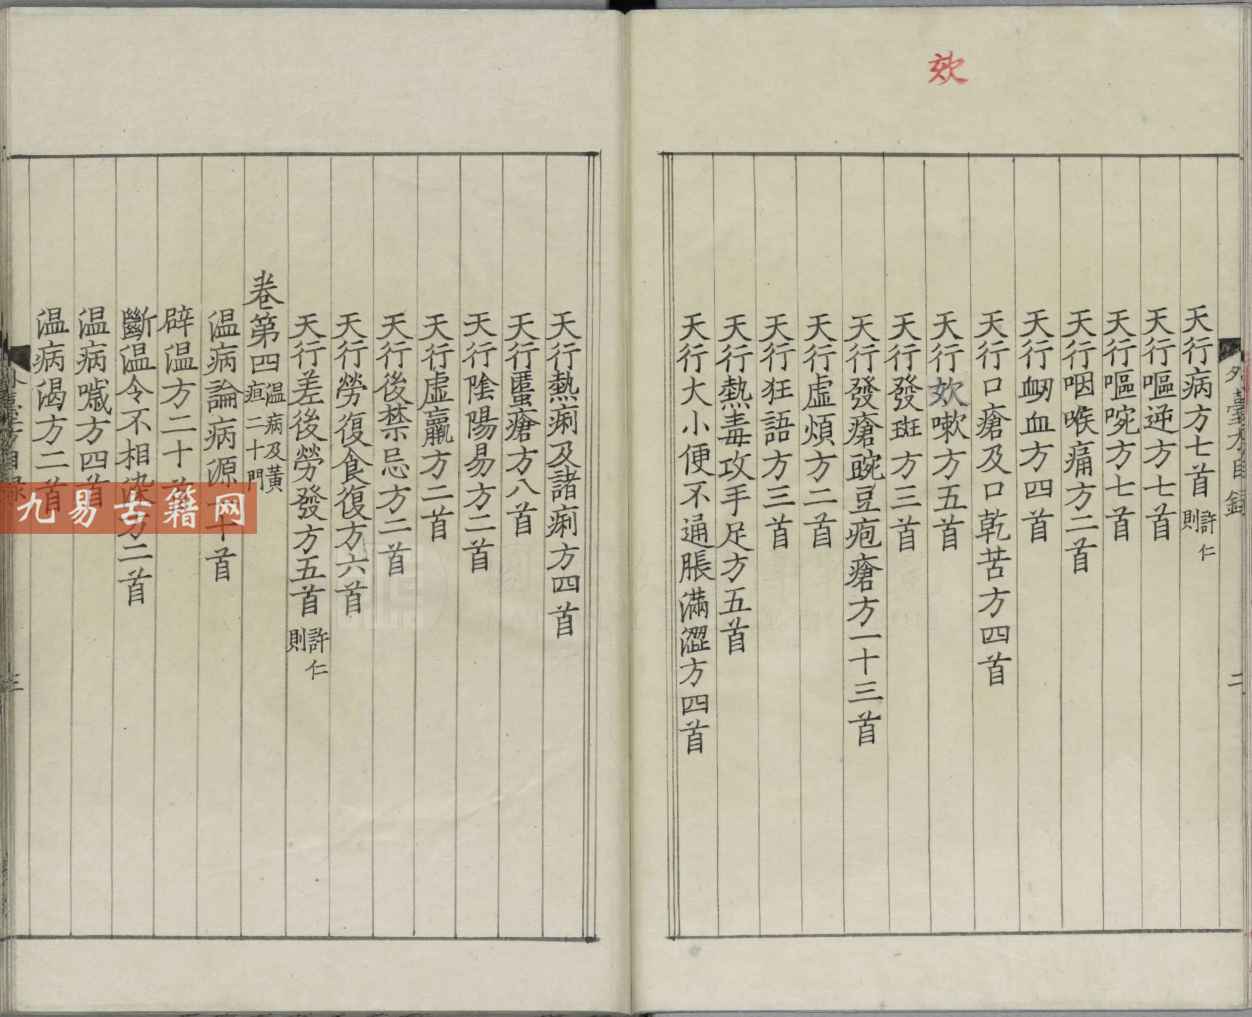 欬
天行病方七首 許仁則
天行嘔逆方七首
天行嘔啘方七首
天行咽喉痛方二首
天行衂血方四首
天行口瘡及口乾苦方四首
天行欬嗽方五首
天行發斑方三首
天行發瘡豌豆疱瘡方一十三首
天行虛煩方二首
天行狂語方三首
天行熱毒攻手足方五首
天行大小便不通脹滿澀方四首
天行熱痢及諸痢方四首
天行䘌瘡方八首
天行陰陽易方二首
天行虛羸方二首
天行後禁忌方二首
天行勞復食復方六首
天行差後勞發方五首 許仁則
卷第四 温病及黃疸二十門
温病論病源 十首
辟温方二十
斷温令不相染方二首
温病噦方四首
温病渴方二首
二
三
九易古籍网